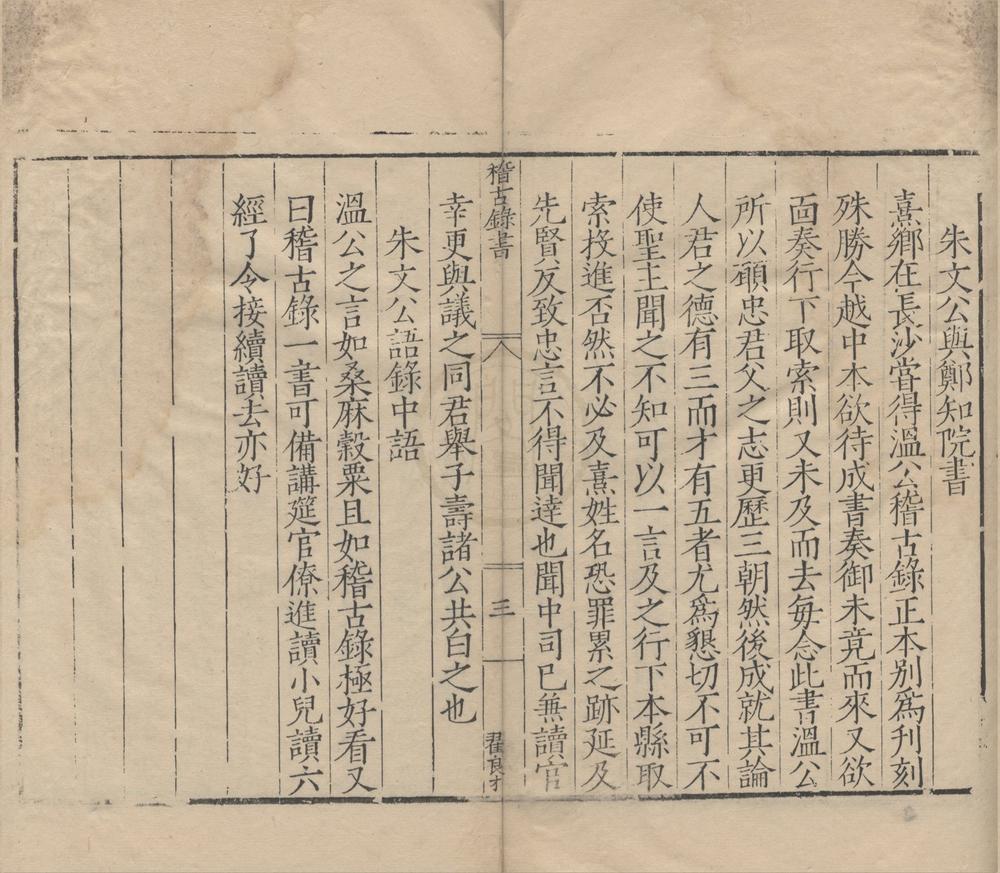 朱文公與鄭知院書
熹鄉在長沙嘗得溫公稽古錄正本别爲刋刻
殊勝今越中本欲待成書奏御未竟而來又欲
面奏行下取索則又未及而去每念此書溫公
所以願忠君父之志更歷三朝然後成就其論
人君之德有三而才有五者尤爲懇切不可不
使聖主聞之不知可以一言及之行下本縣取
索投進否然不必及熹姓名恐罪累之跡延及
先賢反致忠言不得聞達也聞中司已兼讀官
稽古錄書
三
翟良才
幸更與議之同君舉子壽諸公共白之也
朱文公語錄中語
溫公之言如桑麻穀粟且如稽古錄極好看又
曰稽古錄一書可備講筵官僚進讀小兒讀六
經了令接續讀去亦好